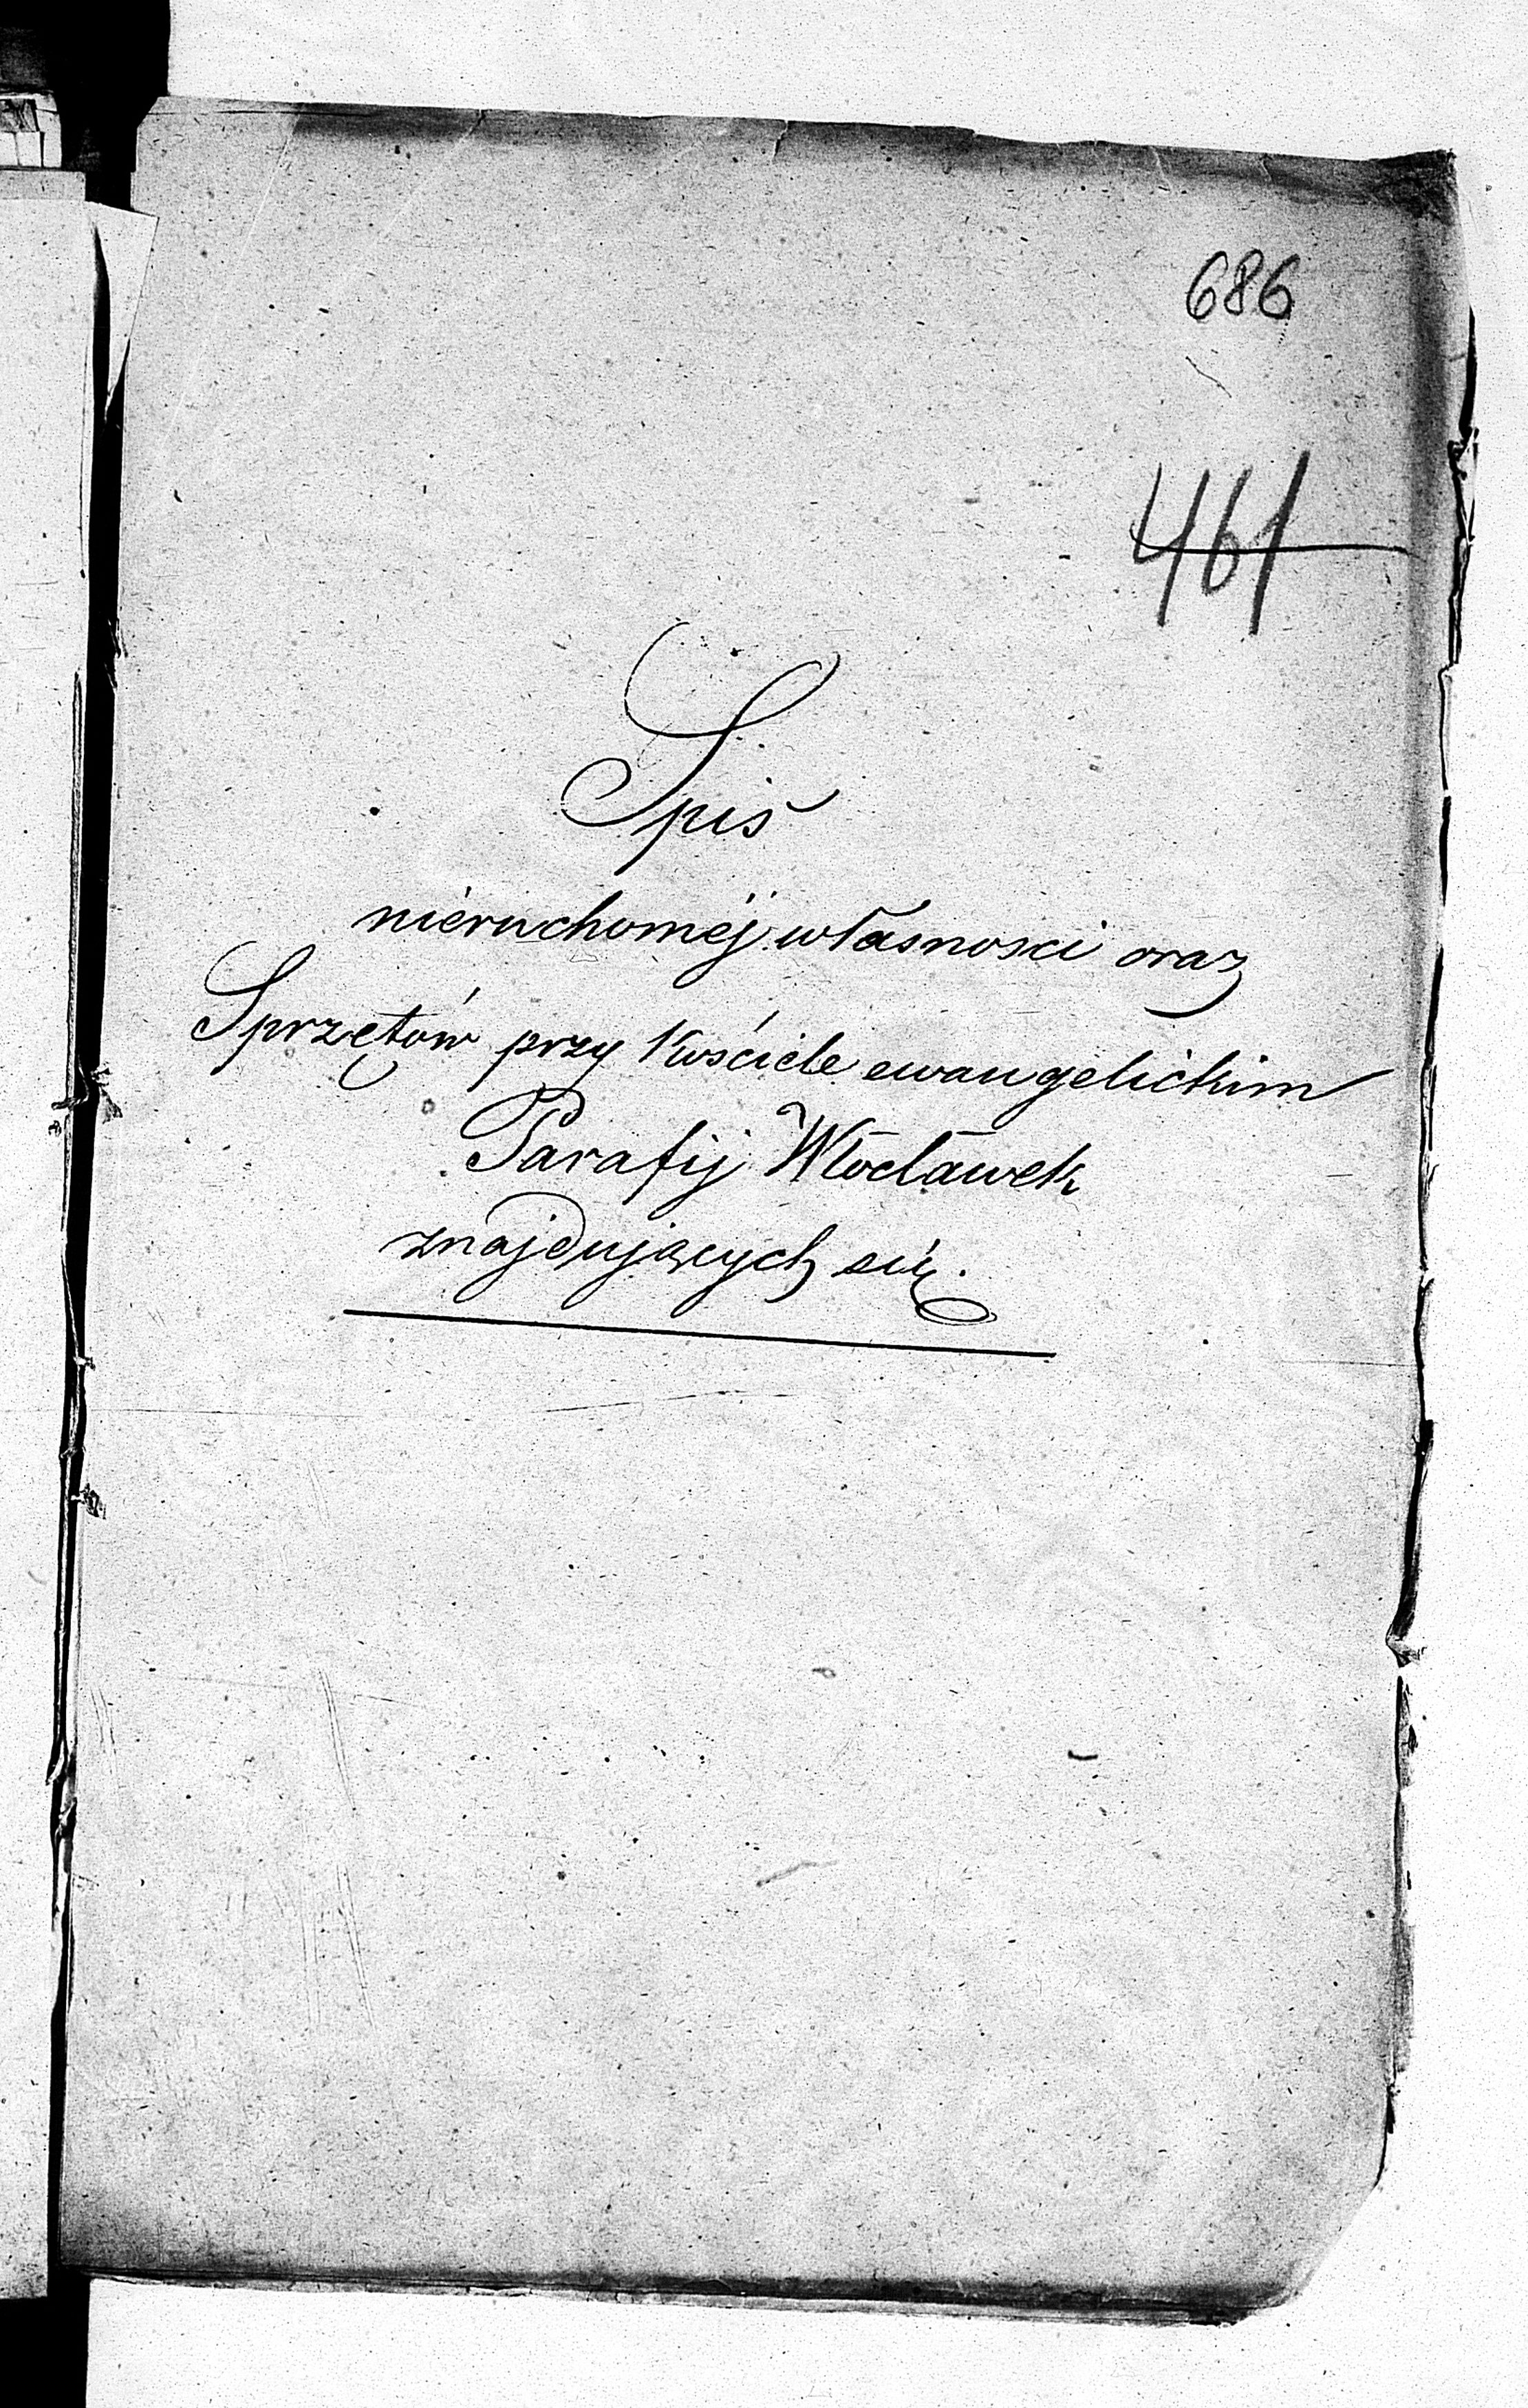 686
461
Spis
nieruchoméj własnosci oraz
Sprzętów przy Kościele ewangelickim
Parafij Włocławek
znajdujących się.